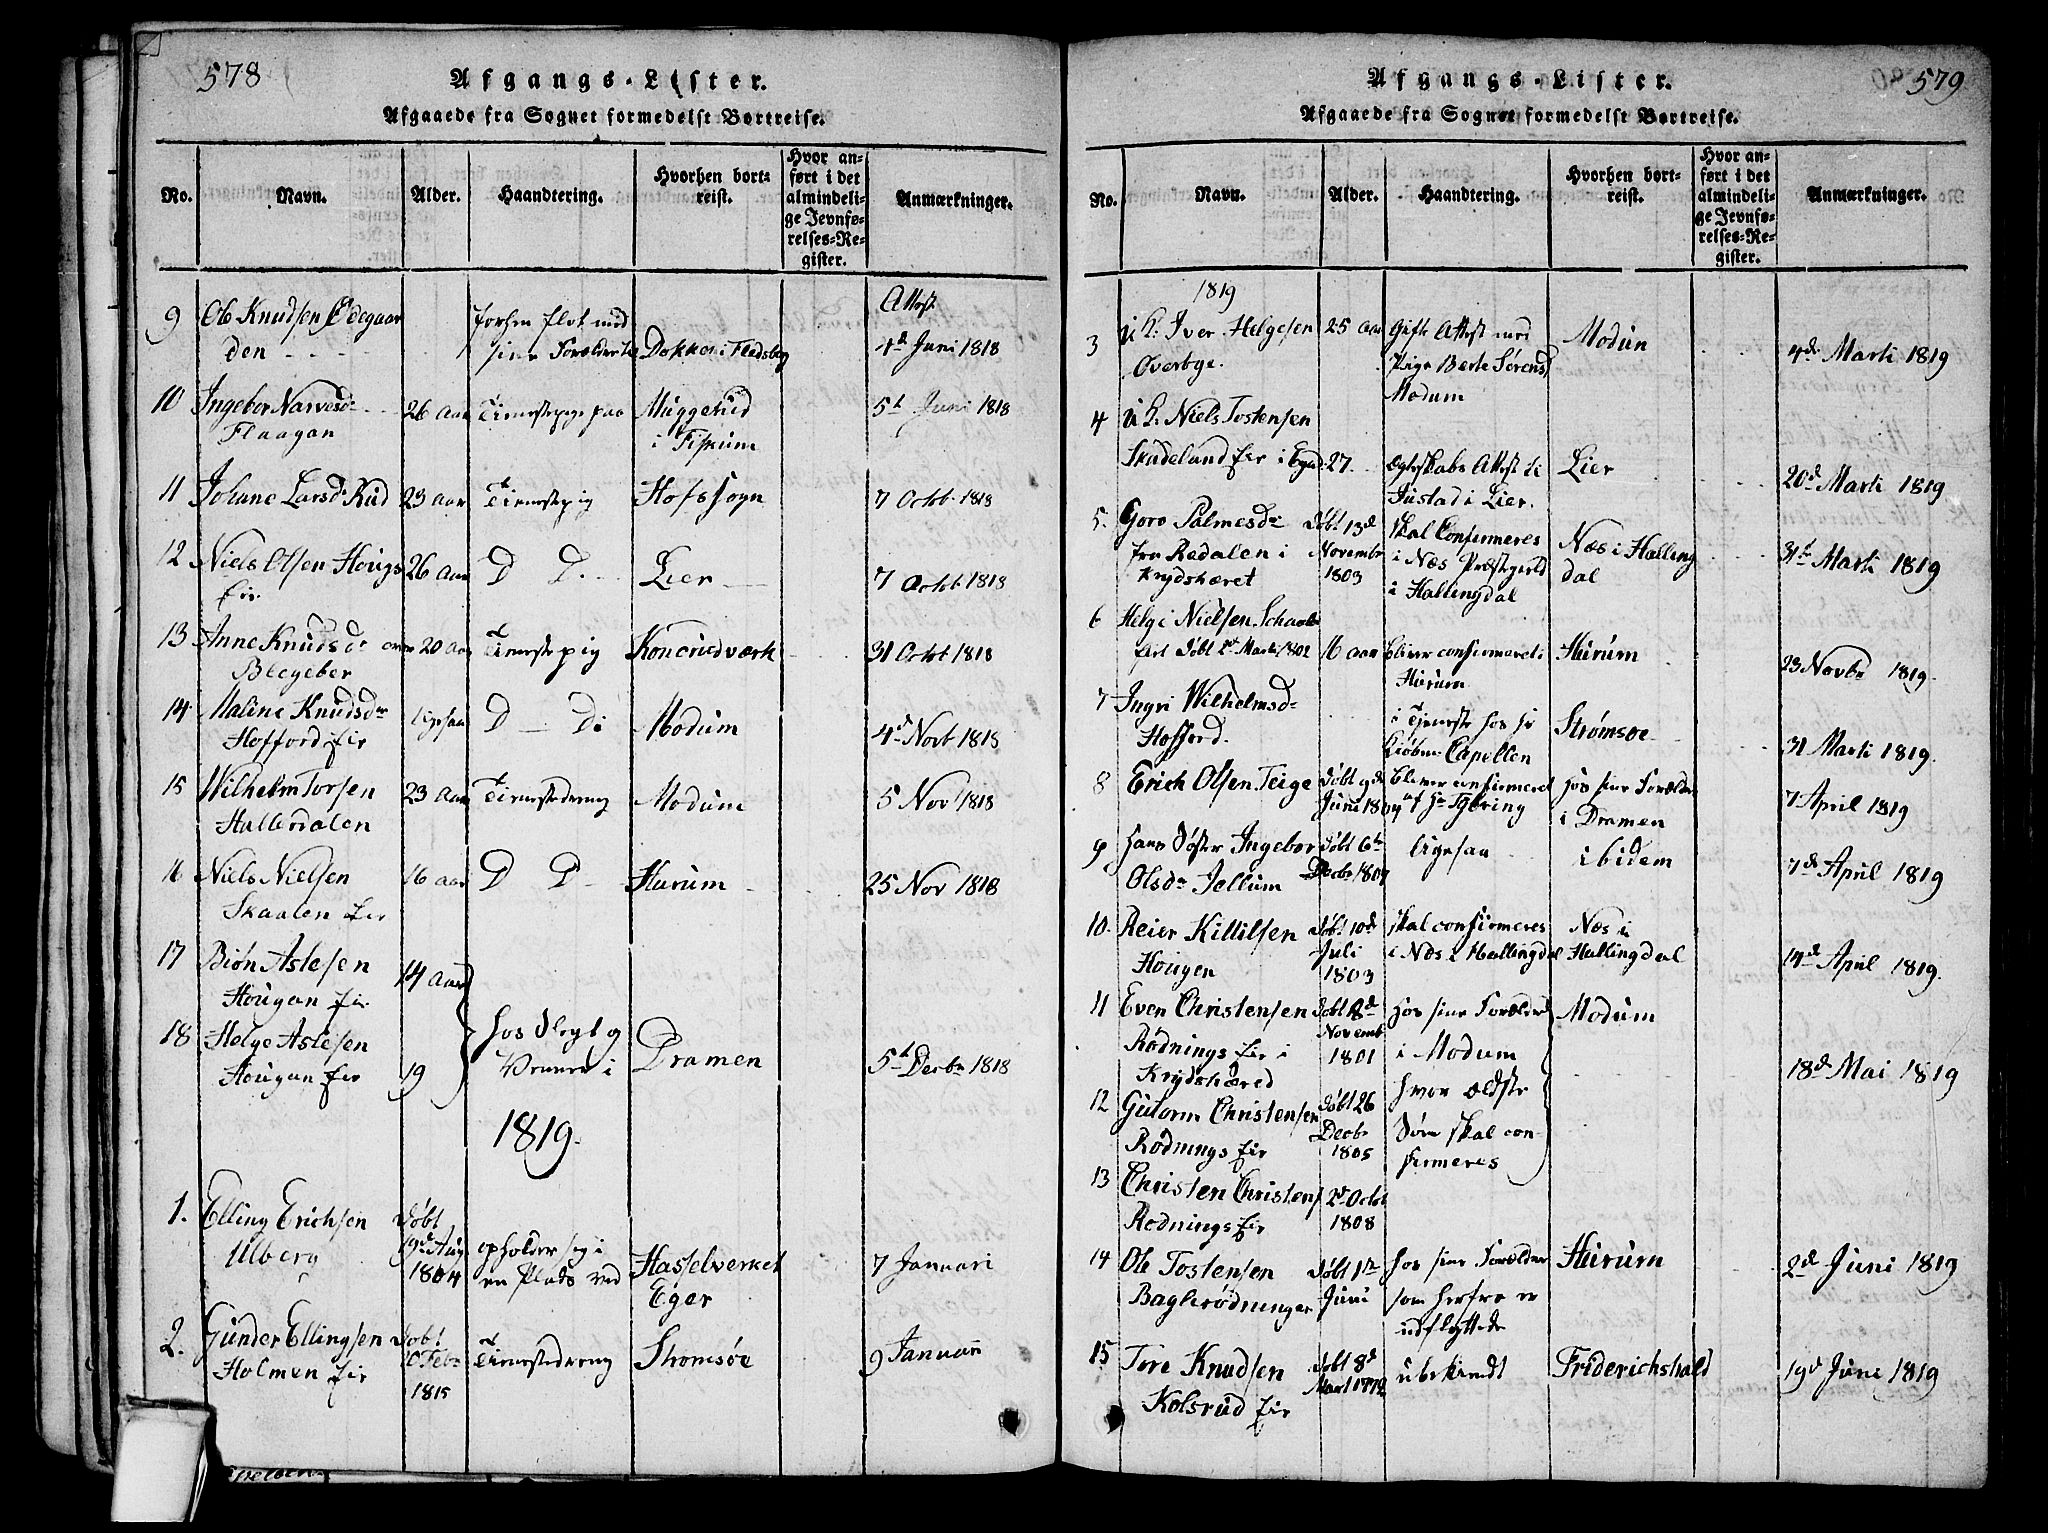 578
Afgangs-Lister.
Afgaaede fra Sognet formedelst Bortreise.
No. Navn. Alder. Haandtering. Hvorhen bortreist. Hvor anført i det almindelige Jevnførelses-Register. Anmærkninger.
9 Ole Knudsen Ødegaar
den - - - - Dokken i Flesberg
Attest
4d Juni 1818
10 Ingebor Narvesdr
Flaagan
26 aar
Muggerud
i Fiskum
5t Juni 1818
11 Johane Larsdr Rud 23 aar Tienestepig Hofs sogn 7 Octb. 1818
12 Niels Olsen Hougs
eir
26 aar D D Lier 7 Octbr 1818
13 Anne Knudsdr
20 aar Tienestepig 31 Octbr 1818
14 Maline Knudsdr
Hofford eir
ligesaa D - Di Modum 4d Novb 1818
15 Wilhelm Torsen
Hallesdalen
23 aar Tienestedreng Modum 5 Nov 1818
16 Niels Nielsen
Skaalen eir
16 aar D D Hurum 25 Nov 1818
17 Biøn Aslesen
Hougan eir
14 aar
18 Helge Aslesen
Hougan eir
19
hos Slegt og
Venner i
Dramen
5t Decbr 1818
1819.
1. Elling Erichsen
Ulberg
døbt
19d Aug
1804
opholder sig i
en Plads ved
Hasselverket
Eger
7 Januari
2. Gunder Ellingsen
Holmen eir
Døbt
10 Febr
1815
Tienestedreng Strømsøe 9 Januari
579
Afgangs-Lister.
Afgaaede fra Sognet formedelst Bortreise.
No. Navn. Alder. Haandtering. Hvorhen bortreist. Hvor anført i det almindelige Jevnførelses-Register. Anmærkninger.
1819
3 U K. Iver Helgesen
Overbye.
25 aar
Gifte Attest med
Pige Berte Sørensd
Modum
Modun
4de Marti 1819
4 U K. Niels Tostensen
Skudeland eir i Eger
27.
Egteskabs Attest ti
Justad i Lier.
Lier
20d Marti 1819
5. Goro Palmesdr
fra Redalen i
Krydsheret
døbt 13d
Novembr
1803
skal Confirmeres
i Næs Præstegield
i Hallengdal
Næs i Halleng
dal
31t Marti 1819
6 Helge Nielsen
døbt 2d Marti 1802
16 aar
bliver confirmeret i
Hurum
Hurum
23 Novbr 1819.
7 Ingri Wilhelmsd
Hofford.
i Tieneste hos hr
Kiøbm Capellen
Strømsøe
31 Marti 1819.
8 Erich Olsen Teige
døbt 9de
Juni 1804
bliver confirmeret
af Hr
hos sine Forældre
i Dramen
7 April 1819
9 hans Søster Ingebor
Olsdr Jellum
døbt 6te
Decbr 1807
ligesaa
ibidem
7de April 1819
10. Reier Killilsen
Hougen
døbt 10d
Juli
1803
skal confirmeres
i Næs i Hallingdal
Næs i
Hallingdal
14d April 1819.
11 Even Christensen
Rødnings eir i
Krydshered
døbt 8d
Novemb
1801
hos sine Forældre
i Modum
Modum
18d Mai 1819
12 Gutorm Christensen
Rødnings eir
døbt 26
Decbr
1805
hvor ældste
Søn skal con-
firmeres
13 Christen Christens
Rødnings eir
2d Octbr
1808
14 Ole Tostensen
Baglerødninger
døbt 1te
Juni
hos sine Forældre
som herfra er
udflyttede
Hurum
2d Juni 1819
15 Tore Knudsen
Kolsrud eir
døbt 8d
ubekiendt Friderichshald 19d Juni 1819